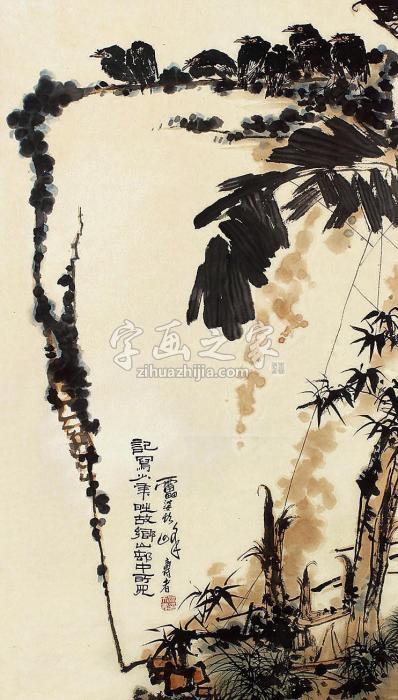 字画之家
zihuazhijia.com
記寫少年時故鄉山邨中所見
雷婆頭峰壽者